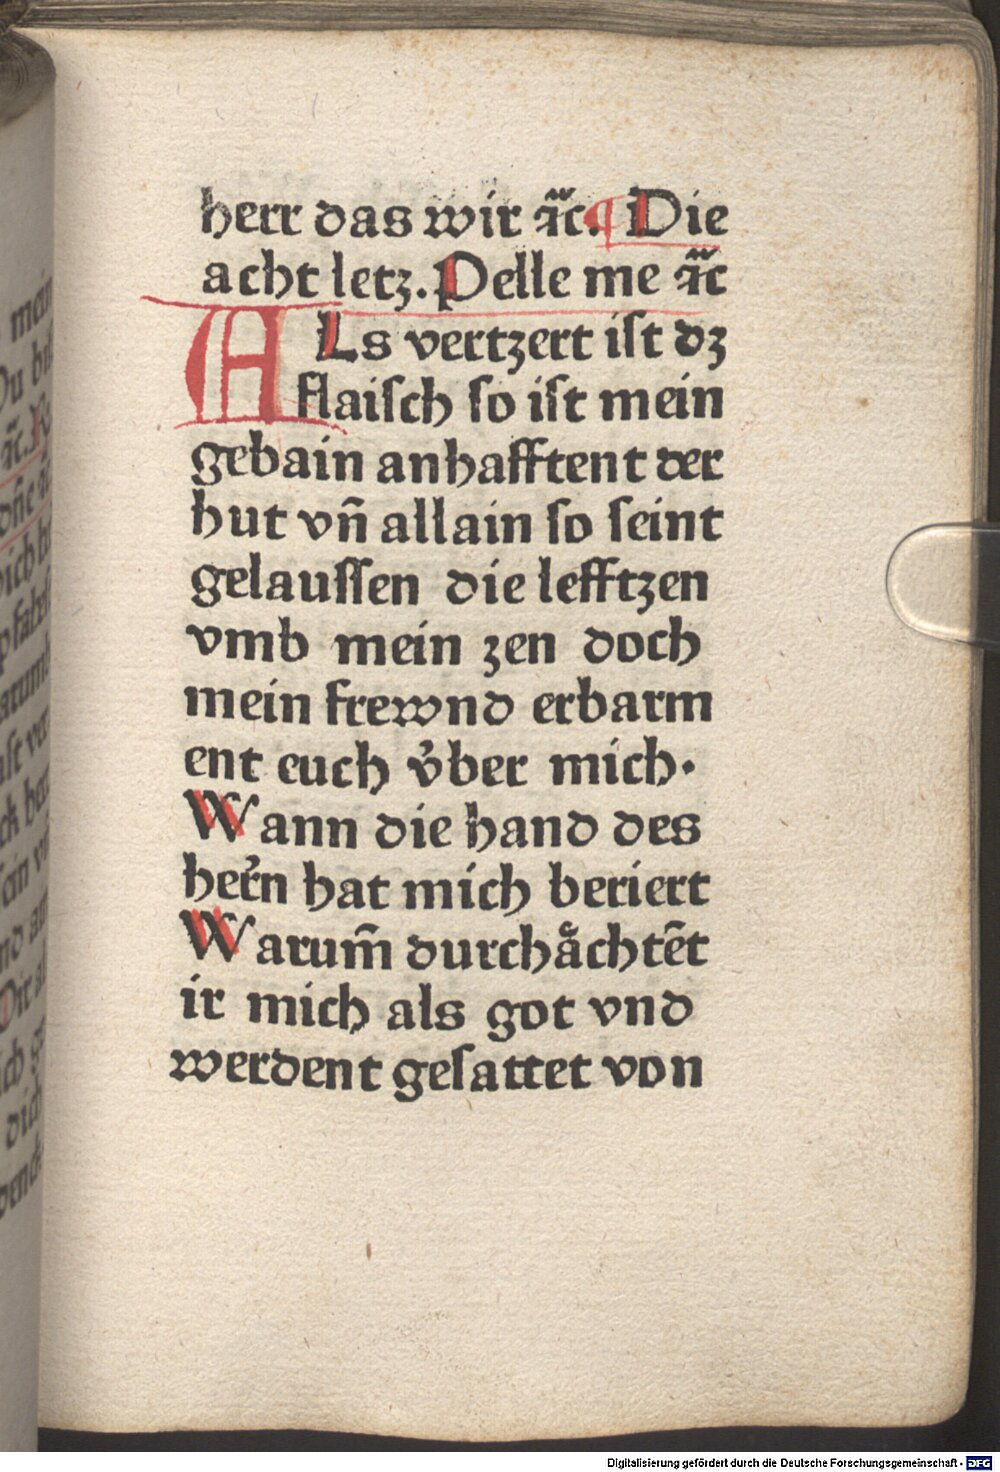 herr das wir ꝛc̃. ¶ Die
acht letz. Pelle me ꝛc̃
ALs vertzert ist dz
flaisch so ist mein
gebain anhafftent der
hut vn̄ allain so seint
gelaussen die lefftzen
vmb mein zen doch
mein frewnd erbarm
ent euch v̓ber mich.
Wann die hand des
her̓n hat mich beriert
Warum̄ durchaͤchtēt
ir mich als got vnd
werdent gesattet von
Digitalisierung gefördert durch die Deutsche Forschungsgemeinschaft - DFG